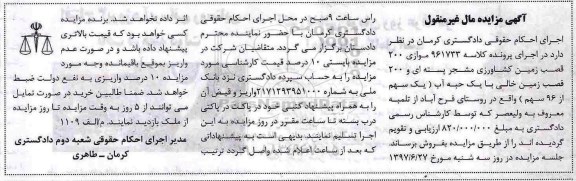 آگهی مزایده مال غیرمنقول
اجرای احکام حقوقی دادگستری کرمان در نظر
دارد در اجرای پرونده کلاسه ۹۶۱۷۳۳ موازی ۲۰۰
قصب زمین کشاورزی مشجر پسته ای و ۲۰۰
قصب زمین خالی با یک حبه آب (یک سهم
از ۹۶ سهم) واقع در روستای فرح آباد از تلمبه
معروف به ولیعصر که توسط کارشناس رسمی
دادگستری به مبلغ ۸۲۰/۰۰۰/۰۰۰ ارزیابی و تقویم
گردیده اند را از طریق مزایده بفروش برساند.
جلسه مزایده در روز سه شنبه مورخ ۱۳۹۷/۶/۲۷
راس ساعت ۹صبح در محل اجرای احکام حقوقی
دادگستری کرمان با حضور نماینده محترم
دادستان برگزار می گردد. متقاضیان شرکت در
مزایده بایستی ۱۰ درصد قیمت کارشناسی مورد
مزایده را به حساب سپرده دادگستری نزد بانک
ملی به شماره ۲۱۷۱۲۹۳۹۵۱۰۰۰ واریز و فیض آن
را به همراه پیشنهاد کتبی خود در پاکت در پاکتی
درب بسته تا ساعت مقرر در روز مزایده به این
اجرا تسلیم نمایند. بدیهی است به پیشنهاداتی
که بعد از ساعت اعلام شده واصل گردد ترتیب
اثر داده نخواهد شد. برنده مزایده
کسی خواهد بود که قیمت بالاتری
پیشنهاد داده باشد و در صورت عدم
واریز بموقع باقیمانده وجه مورد
مزایده ۱۰ درصد واریزی به نفع دولت ضبط
خواهد شد. ضمنا طالبین خرید در صورت تمایل
می توانند از ۵ روز به وقت مزایده تا روز مزایده
از ملک بازدید نمایند. م/الف ۱۱۰۹
مدیر اجرای احکام حقوقی شعبه دوم دادگستری
کرمان - طاهری